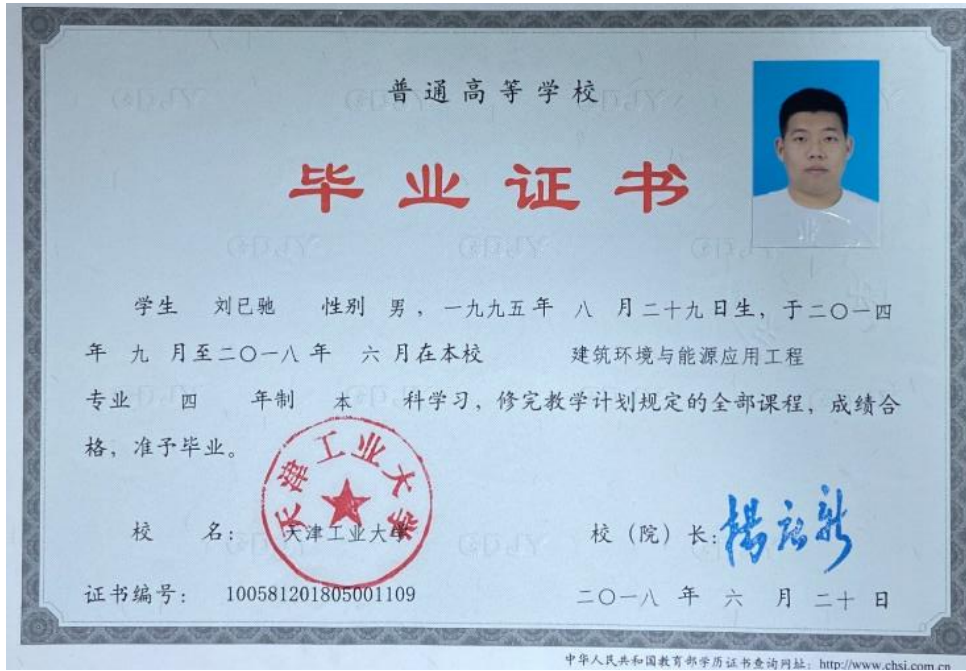 普通高等学校
毕业证书
学生 刘已驰 性别 男，一九九五年 八 月二十九日生，于二〇一四
年 九 月至二〇一八年 六 月在本校 建筑环境与能源应用工程
专业 四 年制 本 科学习，修完教学计划规定的全部课程，成绩合
格，准予毕业。
天津工业大学
校 名： 天津工业大学
校（院）长：
证书编号： 100581201805001109
二〇一八 年 六 月 二十 日
中华人民共和国教育部学历证书查询网址：http://www.chsi.com.cn